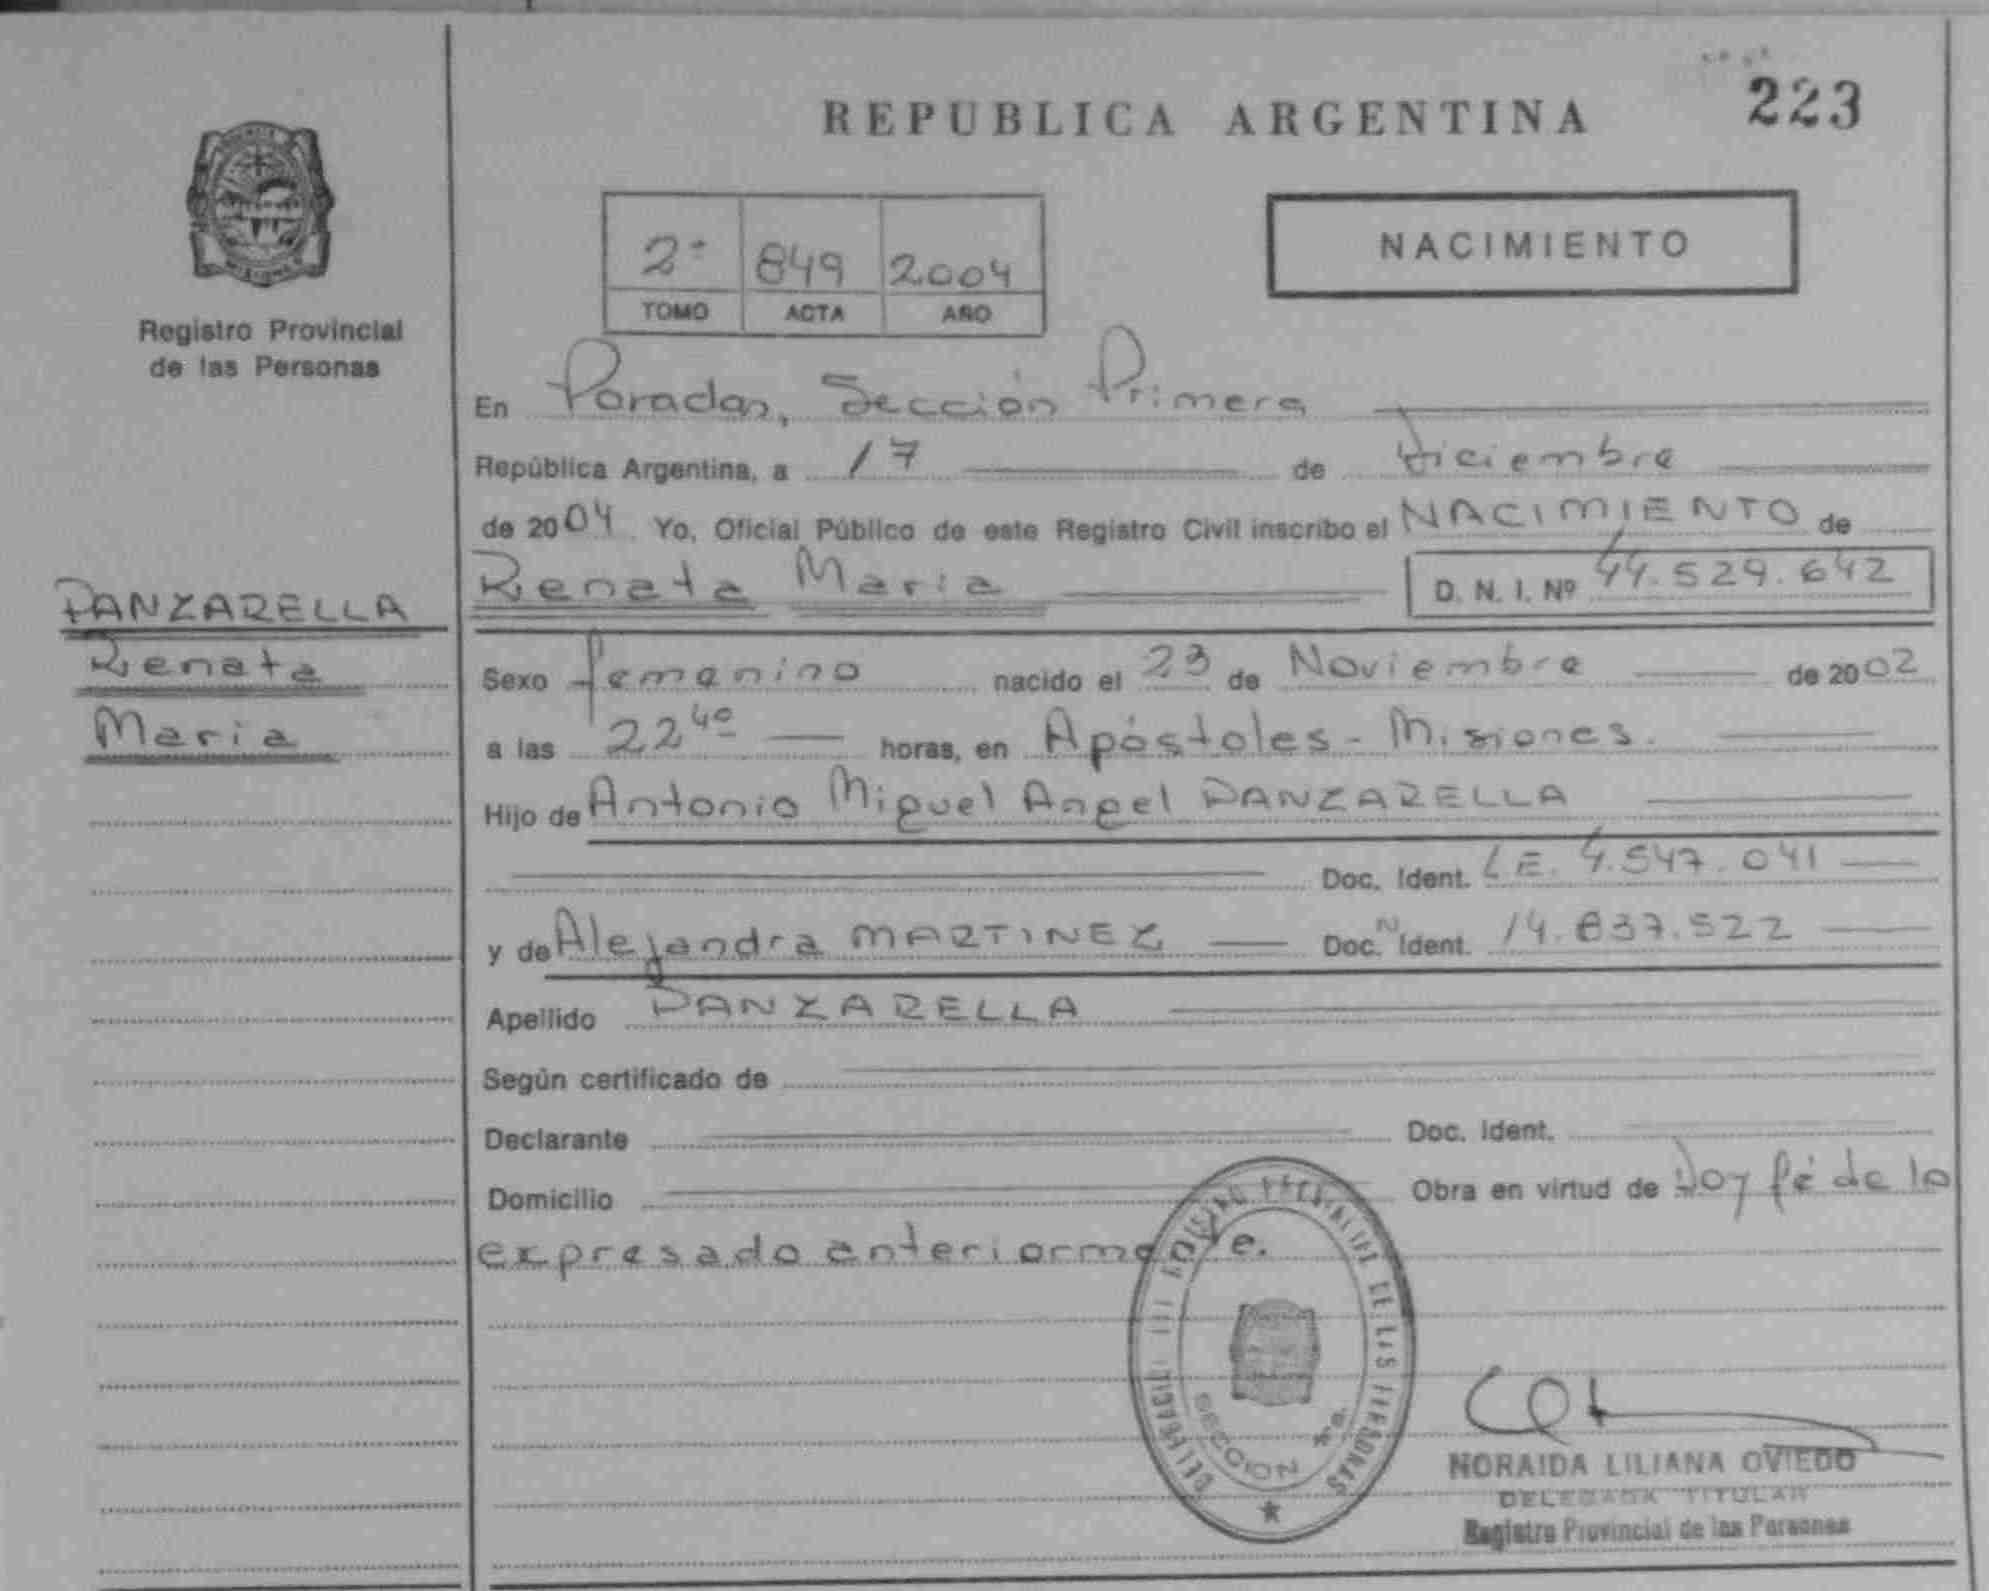 REPUBLICA ARGENTINA
223
2º 849 2004
TOMO ACTA AÑO
NACIMIENTO
Registro Provincial
de las Personas
En Posadas, Sección Primera
República Argentina, a 17 de Diciembre
de 2004 Yo, Oficial Público de este Registro Civil inscribo el NACIMIENTO de
Renata Maria D. N. I. Nº 44.529.642
PANZARELLA
Renata
Maria
Sexo femenino nacido el 23 de Noviembre de 2002
a las 22 40 horas, en Apóstoles - Misiones.
Hijo de Antonio Miguel Angel PANZARELLA
Doc. Ident. L.E. 4.547.041
y de Alejandra MARTINEZ Doc. N Ident. 14.837.522
Apellido PANZARELLA
Según certificado de
Declarante Doc. Ident.
Domicilio Obra en virtud de Doy fé de lo
expresado anteriormente.
DE LAS PERSONAS
SECCION 1ra.
NORAIDA LILIANA OVIEDO
DELEGADA TITULAR
Registro Provincial de las Personas